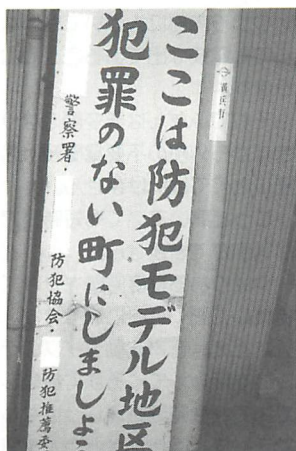 ここは防犯モデル地区
犯罪のない町にしましょう
警察署・防犯協会・防犯推薦委